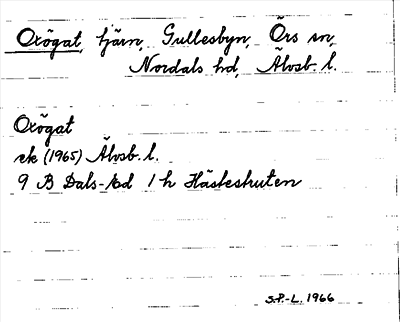 Oxögat, tjärn, Gullesbyn, Örs sn,
Nordals hd, Älvsb. l.
Oxögat
ek (1965) Älvsb. l.
9 B Dals-Ed 1 h Hästeskruten
S.P.-L. 1966